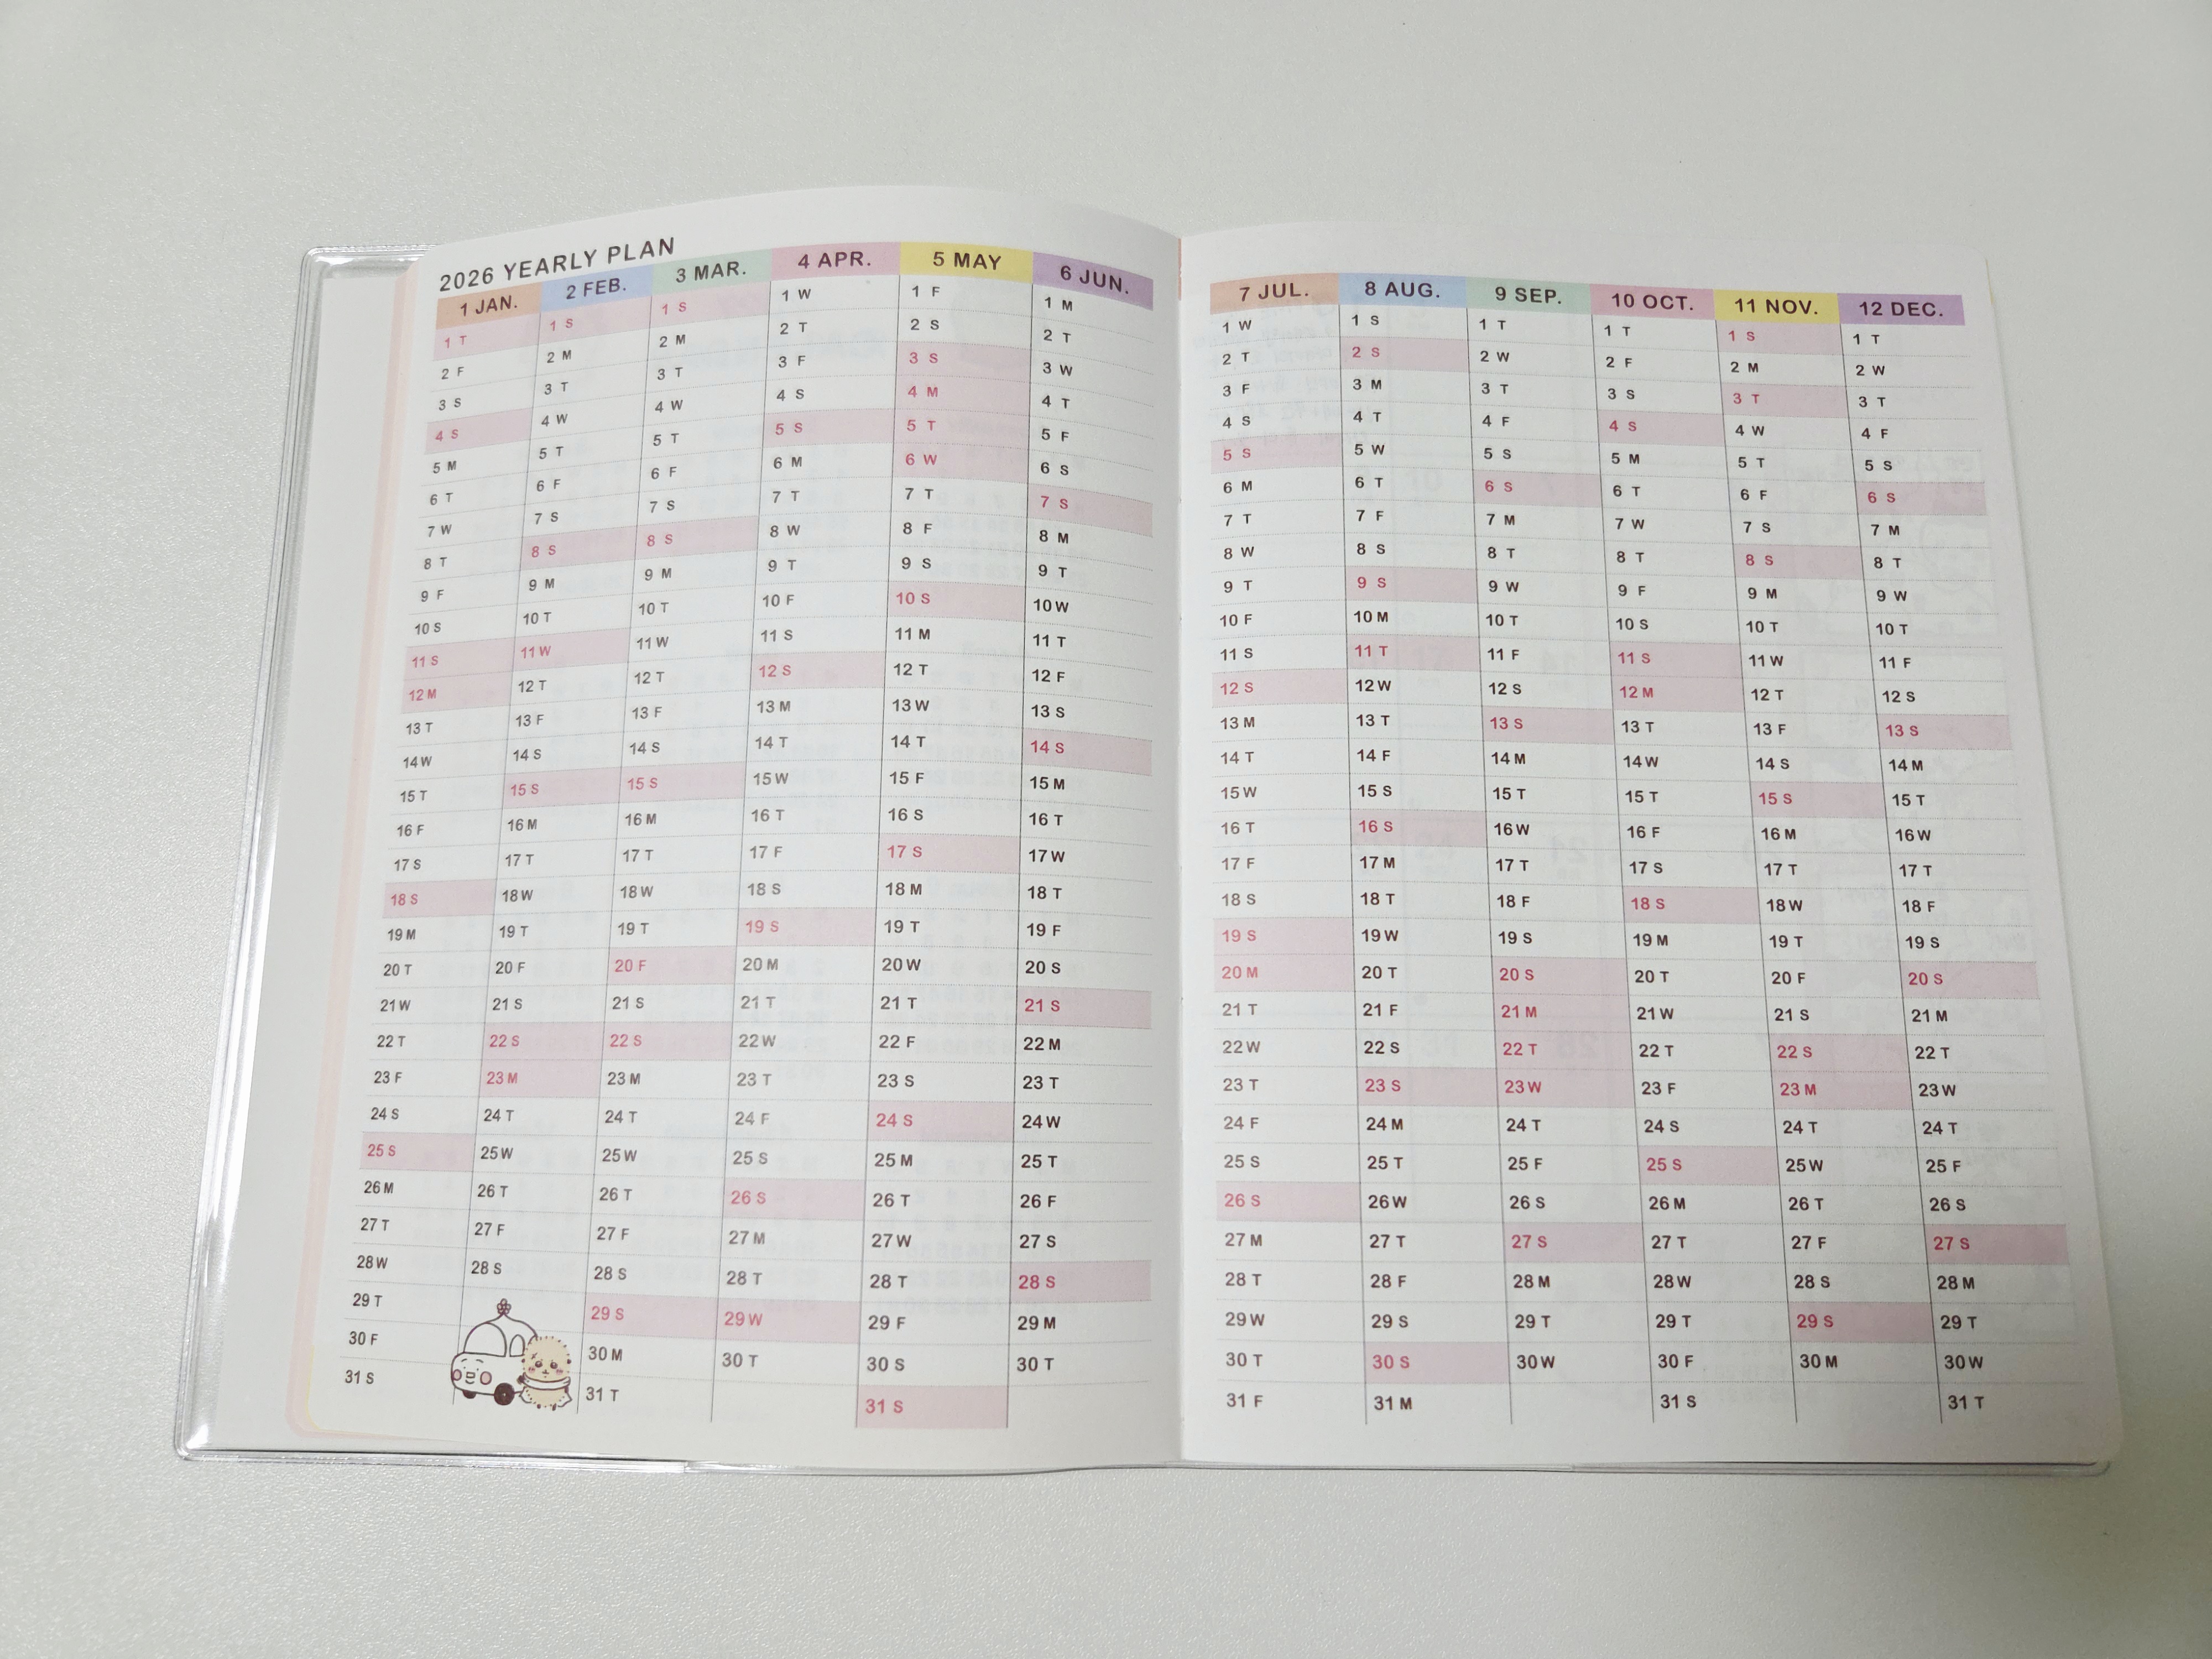 2026 YEARLY PLAN
1 JAN. 2 FEB. 3 MAR. 4 APR. 5 MAY 6 JUN. 7 JUL. 8 AUG. 9 SEP. 10 OCT. 11 NOV. 12 DEC.
1 T 1 S 1 S 1 W 1 F 1 M 1 W 1 S 1 T 1 T 1 S 1 T
2 F 2 M 2 M 2 T 2 S 2 T 2 T 2 S 2 W 2 F 2 M 2 W
3 S 3 T 3 T 3 F 3 S 3 W 3 F 3 M 3 T 3 S 3 T 3 T
4 S 4 W 4 W 4 S 4 M 4 T 4 S 4 T 4 F 4 S 4 W 4 F
5 M 5 T 5 T 5 S 5 T 5 F 5 S 5 W 5 S 5 M 5 T 5 S
6 T 6 F 6 F 6 M 6 W 6 S 6 M 6 T 6 S 6 T 6 F 6 S
7 W 7 S 7 S 7 T 7 T 7 S 7 T 7 F 7 M 7 W 7 S 7 M
8 T 8 S 8 S 8 W 8 F 8 M 8 W 8 S 8 T 8 T 8 S 8 T
9 F 9 M 9 M 9 T 9 S 9 T 9 T 9 S 9 W 9 F 9 M 9 W
10 S 10 T 10 T 10 F 10 S 10 W 10 F 10 M 10 T 10 S 10 T 10 T
11 S 11 W 11 W 11 S 11 M 11 T 11 S 11 T 11 F 11 S 11 W 11 F
12 M 12 T 12 T 12 S 12 T 12 F 12 S 12 W 12 S 12 M 12 T 12 S
13 T 13 F 13 F 13 M 13 W 13 S 13 M 13 T 13 S 13 T 13 F 13 S
14 W 14 S 14 S 14 T 14 T 14 S 14 T 14 F 14 M 14 W 14 S 14 M
15 T 15 S 15 S 15 W 15 F 15 M 15 W 15 S 15 T 15 T 15 S 15 T
16 F 16 M 16 M 16 T 16 S 16 T 16 T 16 S 16 W 16 F 16 M 16 W
17 S 17 T 17 T 17 F 17 S 17 W 17 F 17 M 17 T 17 S 17 T 17 T
18 S 18 W 18 W 18 S 18 M 18 T 18 S 18 T 18 F 18 S 18 W 18 F
19 M 19 T 19 T 19 S 19 T 19 F 19 S 19 W 19 S 19 M 19 T 19 S
20 T 20 F 20 F 20 M 20 W 20 S 20 M 20 T 20 S 20 T 20 F 20 S
21 W 21 S 21 S 21 T 21 T 21 S 21 T 21 F 21 M 21 W 21 S 21 M
22 T 22 S 22 S 22 W 22 F 22 M 22 W 22 S 22 T 22 T 22 S 22 T
23 F 23 M 23 M 23 T 23 S 23 T 23 T 23 S 23 W 23 F 23 M 23 W
24 S 24 T 24 T 24 F 24 S 24 W 24 F 24 M 24 T 24 S 24 T 24 T
25 S 25 W 25 W 25 S 25 M 25 T 25 S 25 T 25 F 25 S 25 W 25 F
26 M 26 T 26 T 26 S 26 T 26 F 26 S 26 W 26 S 26 M 26 T 26 S
27 T 27 F 27 F 27 M 27 W 27 S 27 M 27 T 27 S 27 T 27 F 27 S
28 W 28 S 28 S 28 T 28 T 28 S 28 T 28 F 28 M 28 W 28 S 28 M
29 T 29 S 29 W 29 F 29 M 29 W 29 S 29 T 29 T 29 S 29 T
30 F 30 M 30 T 30 S 30 T 30 T 30 S 30 W 30 F 30 M 30 W
31 S 31 T 31 S 31 F 31 M 31 S 31 T